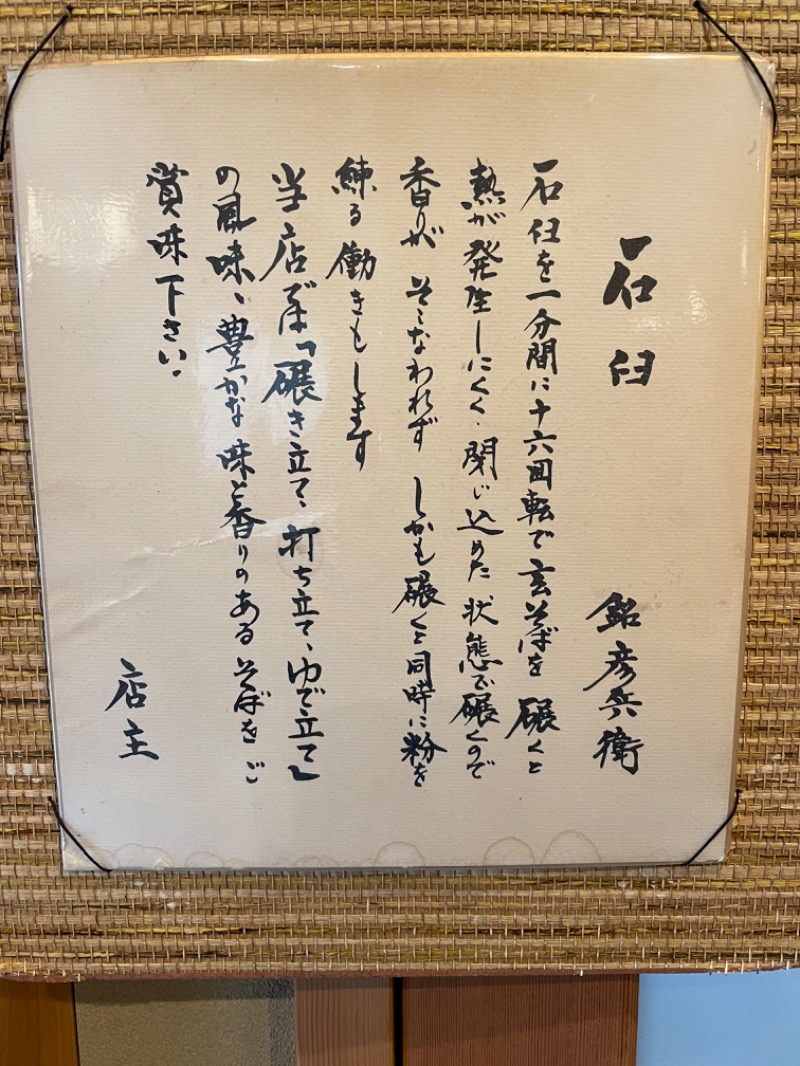 石臼
銘彦兵衛
石臼を一分間に十六回転で玄そばを碾くと
熱が発生しにくく、閉じ込めた状態で碾くので
香りが そこなわれず しかも碾くと同時に粉を
練る働きもします
当店では「碾き立て、打ち立て、ゆで立て」
の風味、豊かな味と香りのあるそばをご
賞味下さい。
店主